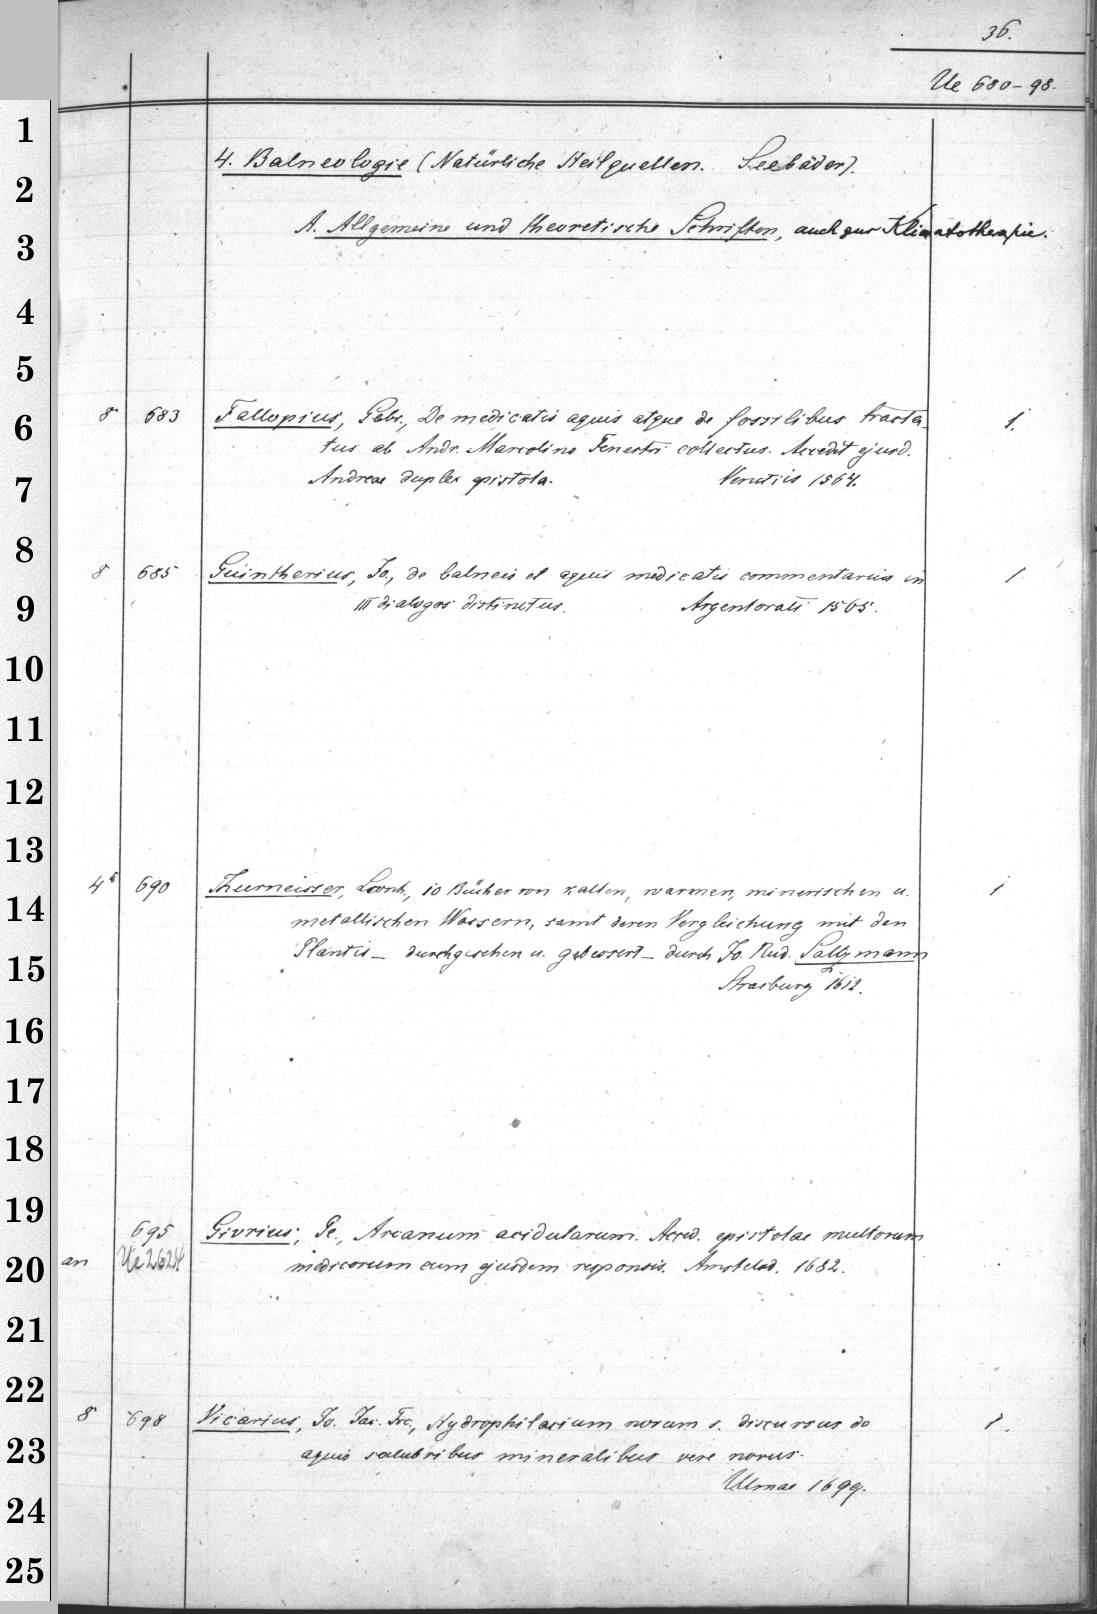 36.
Ue 680-98.
1
4. Balneologie (Natürliche Heilquellen. Seebäder).
2
A. Allgemeine und theoretische Schriften, auch zur Klimatotherapie.
3
4
5
8 683 Fallopius, Gabr., De medicatis aquis atque de fossilibus tracta- 1.
6
tus ab Andr. Marcolino Fenestri collectus. Accedit ejusd.
7
Andreae duplex epistola. Venetiis 1564.
8
8 685 Guintherius, Jo., de balneis et aquis medicatis commentarius in 1
9
III dialogos distinctus. Argentorati 1565.
10
11
12
13
4° 690 Thurneisser, Leonh., 10 Bücher von kalten, warmen, minerischen u. 1
14
metallischen Wassern, samt deren Vergleichung mit den
15
Plantis - durchgesehen u. gebessert - durch Jo. Rud. Saltzmann
Strasburg 1612.
16
17
18
19
695 Givrius, Pe., Arcanum acidularum. Acced. epistolae multorum
20
an Ue 2624 medicorum cum ejusdem responsis. Amstelod. 1682.
21
22
8 698 Vicarius, Jo. Jac. Frc., Hydrophilacium novum s. discursus de 1.
23
aquis salubribus mineralibus vere novus.
Ulmae 1699.
24
25